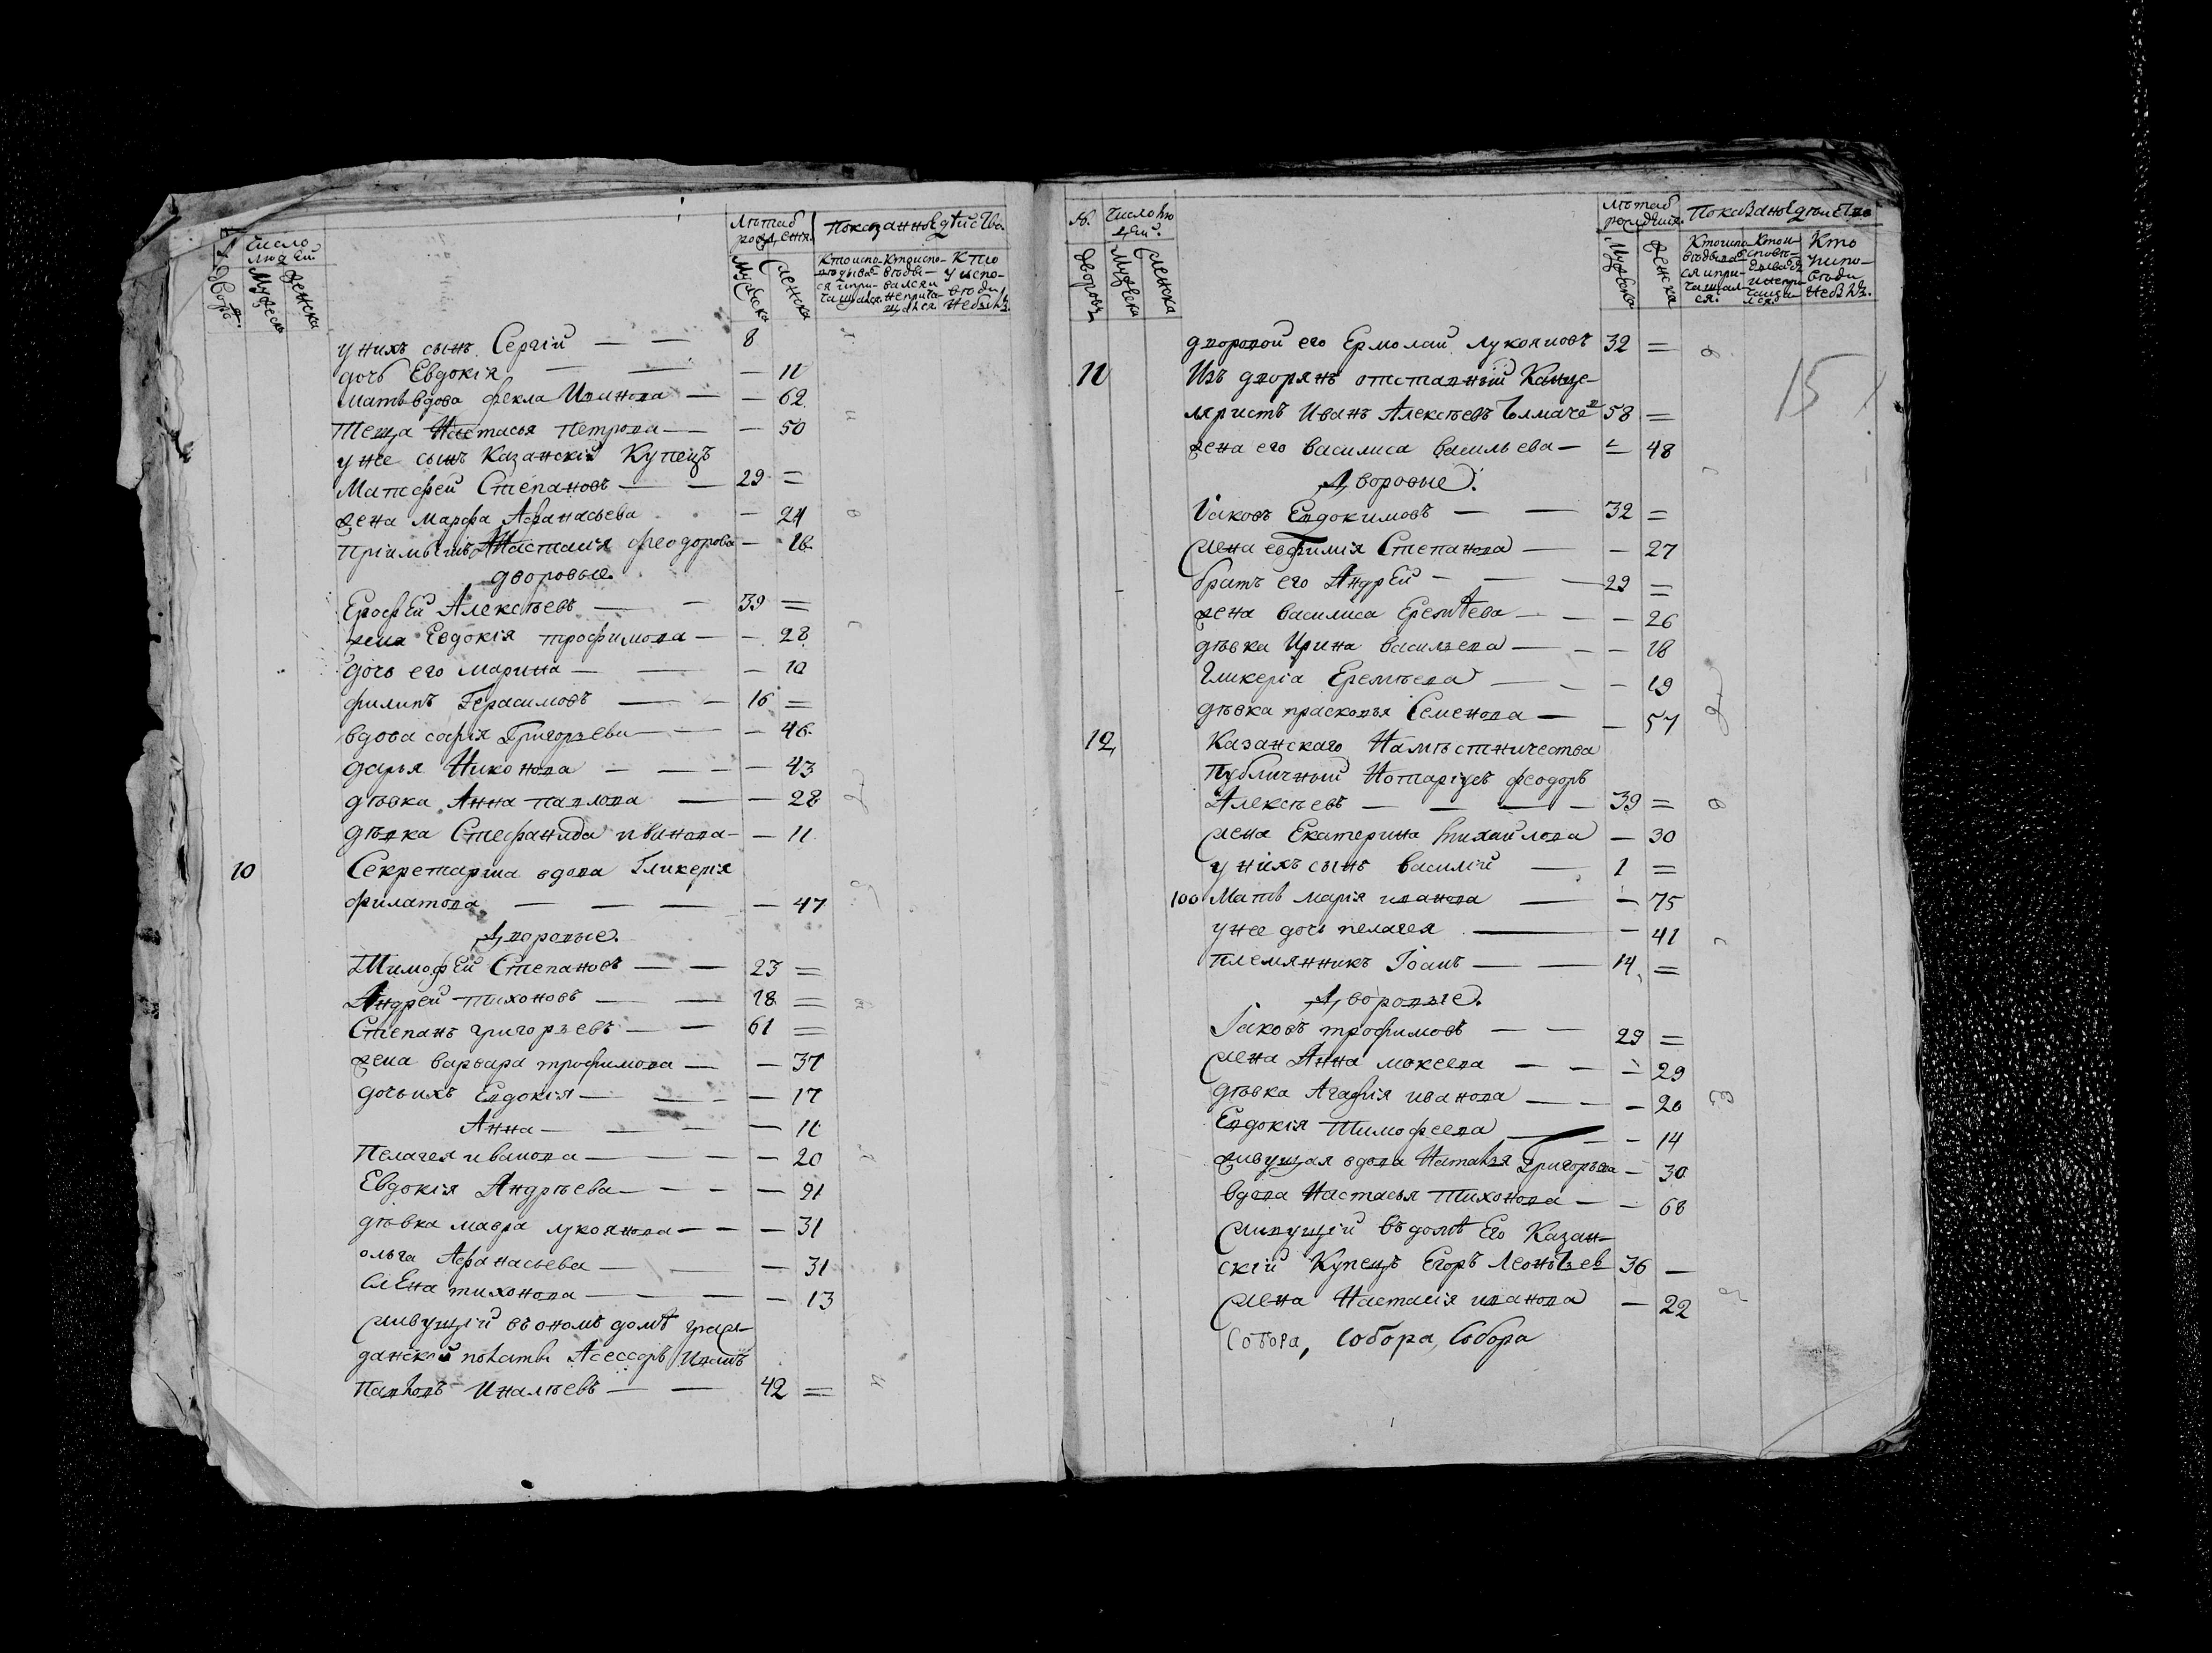 Число людей
Лѣта отъ рожденiя
Показанныя дѣйства
дворовъ
Мужеска
Женска
Мужеска
Женска
Кто исповѣдывался и причащался
Кто исповѣдывался и не причащался
Кто у исповѣди небылъ
у нихъ сынъ Сергiй — — 8
дочь Евдокiя — — — 11
мать вдова фекла Иванова — — 62
Теща Настасья Петрова — — 50
у нее сынъ Казанскiй Купецъ
Матфей Степановъ — — 29 =
жена Марфа Афанасьева — 24
Прiимышъ Настасiя феодорова — 18
дворовые.
Ерофей Алексѣевъ — — 39 =
жена Евдокiя трофимова — — 28
дочь его марина — — — 10
филипъ Герасимовъ — — 16 =
вдова софiя Григорьева — — — 46
дарья Никонова — — — — 43
дѣвка Анна павлова — — 28
дѣвка Стефанида иванова — — 11
10 Секретарша вдова Гликерiя
филатова — — — — 47
Дворовые.
Тимофей Степановъ — — 23 =
Андрей тихоновъ — — 18 =
Степанъ григорьевъ — — 61 =
жена варвара трофимова — — 37
дочь ихъ Евдокiя — — — — 17
Анна — — — — 11
Пелагея иванова — — — — 20
Евдокiя Андрѣева — — — — 91
дѣвка мавра лукоянова — — — 31
ольга Афанасьева — — — 31
Елена тихонова — — — — 13
живущiй въ ономъ домѣ граж-
данской полаты Асессоръ Иванъ
Павловъ — — 42 =
№. Число лю
дей.
Лѣта отъ рожденiя.
Показанные дѣйства
дворовъ
Мужеска
Женска
Мужеска
Женска
Кто исповѣдывался и причащался.
Кто исповѣдывался и непричащался
Кто у исповѣди небылъ.
дворовой его Ермолай Лукояновъ 32 =
15
11 Изъ дворянъ отставный Канце-
ляристъ Иванъ Алексѣевъ Толмачев 58 =
жена его василиса васильева — — 48
Дворовые.
Iаковъ Евдокимовъ — — 32 =
жена евфимiя Степанова — — 27
братъ его Андрей — — — 29 =
жена василиса Еремѣева — — — 26
дѣвка Ирина васильева — — — 18
Гликерiа Еремѣева — — — 19
дѣвка прасковья Семенова — — 57
12 Казанскаго Намѣстничества
Публичный Нотарiусъ феодоръ
Алексѣевъ — — — — 39 =
жена Екатерина михайлова — 30
у нихъ сынъ василiй — 1 =
100 Мать марiя иванова — — 75
у нее дочь пелагея — — 41
племянникъ Iоанъ — — 14 =
Дворовые.
Iаковъ трофимовъ — — 29 =
жена Анна мокеева — — — 29
дѣвка Агафiя иванова — — — 20
Евдокiя Тимофеева — — — 14
живущая вдова Наталья Григорьева — 30
вдова Настасья тихонова — — 68
живущiй въ домѣ Его Казан-
скiй Купецъ Егоръ Леонтьев 36 —
жена Настасiя иванова — 22
Собора, Собора, Собора